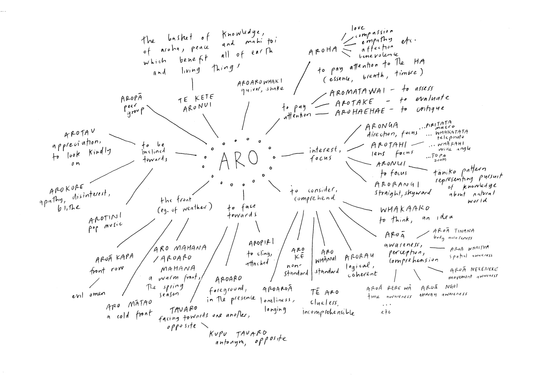 the basket of knowledge,
of aroha, peace and mahi toi
which benefit all of earth
and living things!
TE KETE
ARONUI
AROAROWHAKI
quiver, shake
AROHA
love
compassion
empathy etc.
affection
benevolence
to pay attention to the HA
(essence, breath, timbre)
to pay
attention
AROMATAWAI - to assess
AROTAKE - to evaluate
AROHAEHAE - to critique
AROPĀ
peer
group
AROTAU
appreciation,
to look kindly
on
to be
inclined
towards
AROKORE
apathy, disinterest,
blithe
ARO
interest,
focus
ARONGA
direction, focus
AROTAHI
lens focus
macro
telephoto
wide angle
ARONUI
to focus
ARORANGI
straight, skyward
taniko pattern
representing pursuit
of knowledge
about natural
world
to consider,
comprehend
WHAKAARO
to think, an idea
AROĀ
awareness,
perception,
comprehension
AROĀ TINANA
body awareness
spatial awareness
AROĀ NEKENEKE
movement awareness
AROĀ REREWĀ
time awareness
etc
ARORAU
logical,
coherent
ARO
WHĀNUI
standard
ARO
KĒ
non-
standard
TĒ ARO
clueless,
incomprehensible
AROAROĀ
loneliness,
longing
to face
towards
AROPIRI
to cling,
attached
AROARO
foreground,
in the presence
TAUARO
facing towards one another,
opposite
KUPU TAUARO
antonym, opposite
the front
(eg. of weather)
AROTINI
pop music
AROĀ KAPA
front row
evil omen
ARO MAHANA
AROARO
MAHANA
a warm front,
the spring
season
ARO MĀTAO
a cold front